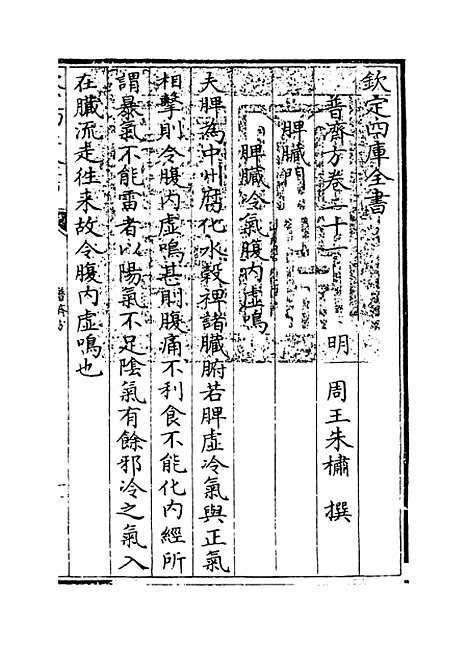 欽定四庫全書
普濟方卷二十一
明 周王朱橚 撰
脾臟門
脾臟冷氣腹内虛鳴
夫脾為中州腐化水穀裨諸臟腑若脾虛冷氣與正氣
相擊則令腹内虛鳴甚則腹痛不利食不能化内經所
謂暴氣不能雷者以陽氣不足陰氣有餘邪冷之氣入
在臟流走往来故令腹内虛鳴也